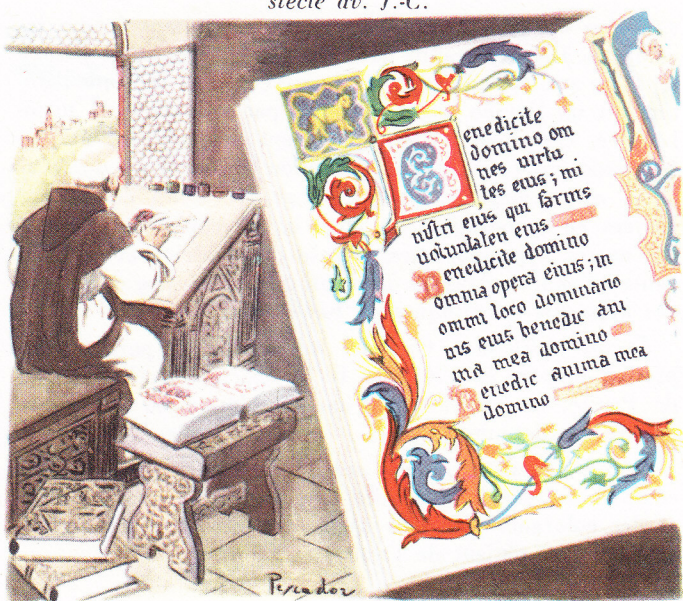 siècle av. J.-C.
Benedicite
domino om
nes uirtu
tes eius; mi
nistri eius qui farins
uoluntalen eius
Benedicite domino
omnia opera eiius; in
ommi loco dominario
nis eius benedic ani
ma mea domino
Benedic anima mea
domino
Pescador